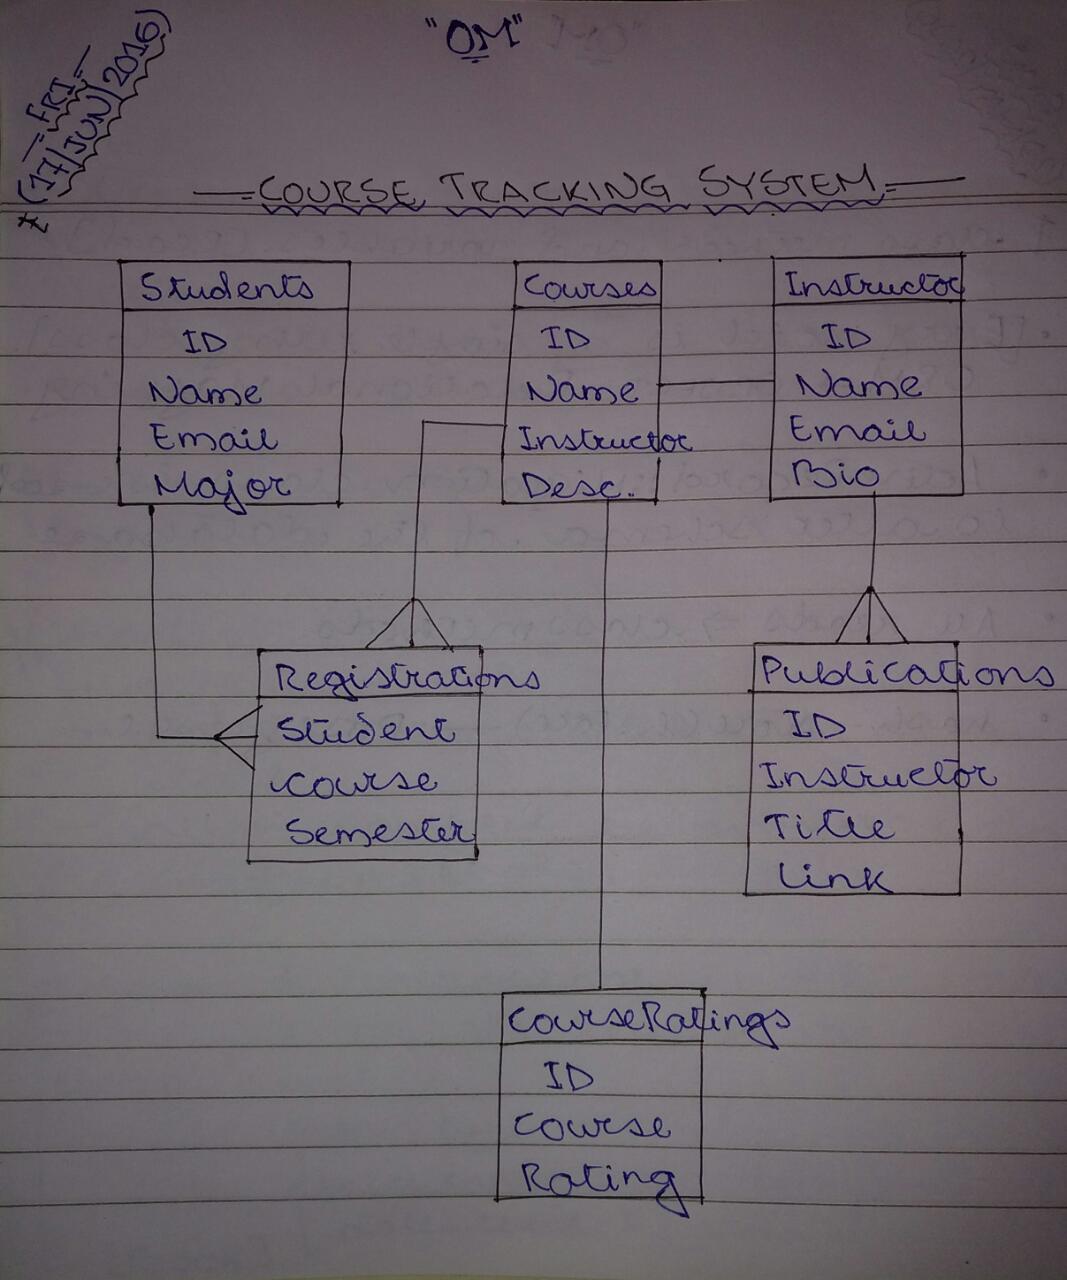 "OM"
FRI
* (17/JUN/2016)
COURSE TRACKING SYSTEM
Students
ID
Name
Email
Major
Courses
ID
Name
Instructor
Desc.
Instructor
ID
Name
Email
Bio
Registrations
Student
Course
Semester
Publications
ID
Instructor
Title
Link
CourseRatings
ID
Course
Rating